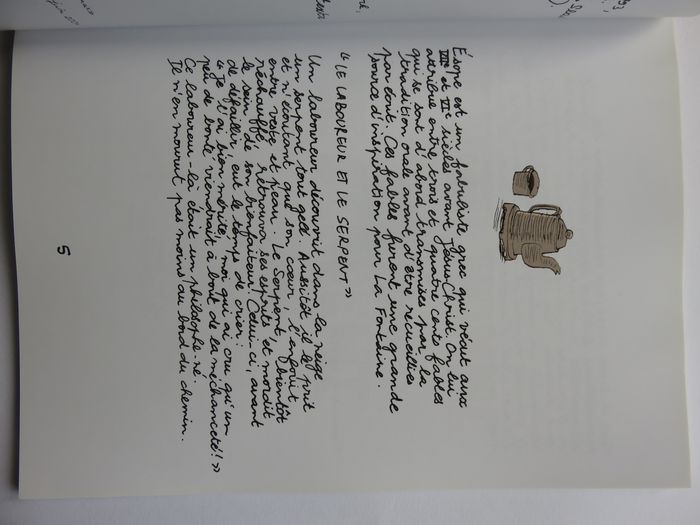 Ésope est un fabuliste grec qui vécut aux
VIIe et VIe siècles avant Jésus Christ. On lui
attribue entre trois et quatre cents fables
qui se sont d'abord transmises par la
tradition orale avant d'être recueillies
par écrit. Ces fables furent une grande
source d'inspiration pour La Fontaine.
"LE LABOUREUR ET LE SERPENT"
Un laboureur découvrit dans la neige
un serpent tout gelé. Aussitôt il le prit
et n'écoutant que son cœur, l'enfouit
entre veste et peau. Le Serpent bientôt
réchauffé, retrouva ses esprits et mordit
le sein de son bienfaiteur. Celui-ci, avant
de défaillir, eut le temps de crier:
"Je l'ai bien mérité, moi qui ai cru qu'un
peu de bonté viendrait à bout de la méchanceté!"
Ce laboureur-là était un philosophe-né.
Il n'en mourut pas moins du bord du chemin.
5